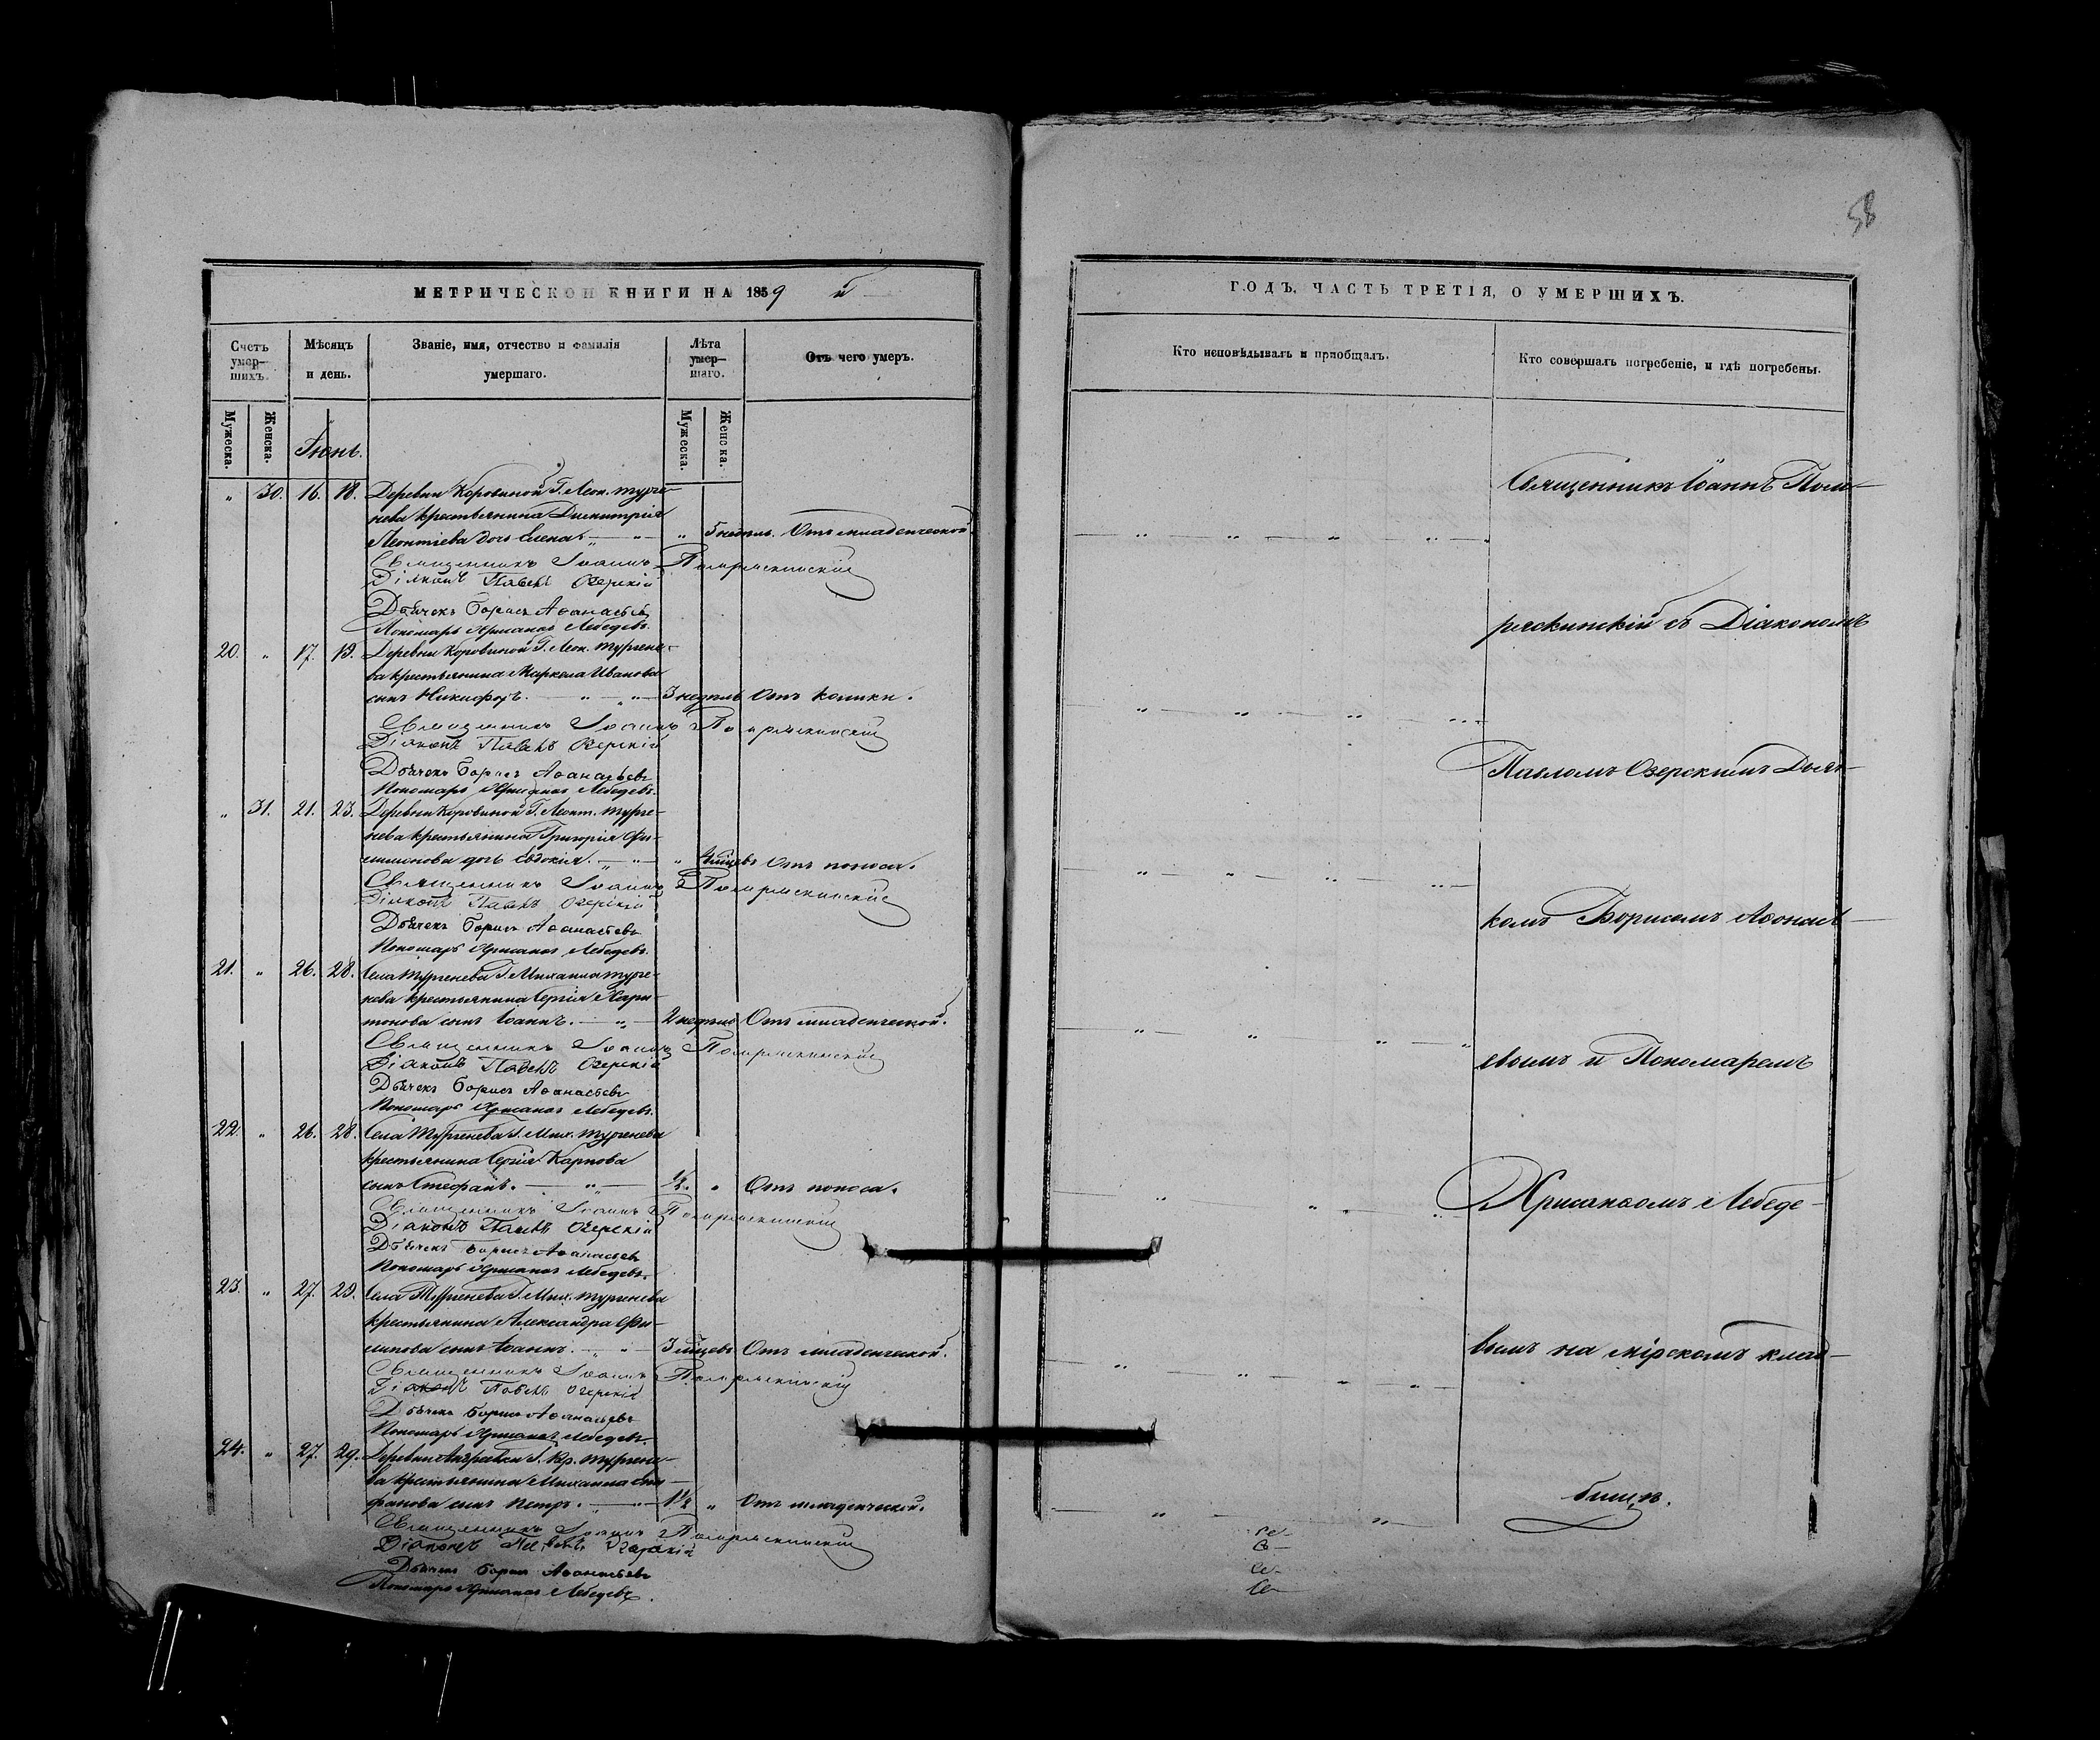 МЕТРИЧЕСКОЙ КНИГИ НА 1859 й
Счетъ умер-шихъ.
Мѣсяцъ и день.
Званіе, имя, отчество и фамилія умершаго.
Лѣта умер-шаго.
Отъ чего умеръ.
Мужеска.
Женска.
Іюнь.
Мужеска.
Женска.
„ 30. 16. 18. Деревни Коровиной Г. Леон. Турге-
нева крестьянина Димитрія
Леонтіева дочь Елена. „ 5 недѣль. Отъ младенческой.
Священникъ Іоаннъ
Діаконъ Павелъ Озерскій
Дьячекъ Борисъ Аѳанасьевъ
Пономарь Хрисанѳъ Лебедевъ.
20. „ 17. 19. Деревни Коровиной Г. Леон. Тургене-
ва крестьянина Маркела Иванова
сынъ Никифоръ. 3 недѣль Отъ колики.
Священникъ Іоаннъ
Діаконъ Павелъ Озерскій
Дьячекъ Борисъ Аѳанасьевъ
Пономарь Хрисанѳъ Лебедевъ.
„ 31. 21. 23. Деревни Коровиной Г. Леонт. Турге-
нева крестьянина Григорія Фи-
лимонова дочь Евдокія. „ мѣсцевъ Отъ поноса.
Священникъ Іоаннъ
Діаконъ Павелъ Озерскій
Дьячекъ Борисъ Аѳанасьевъ
Пономарь Хрисанѳъ Лебедевъ.
21. „ 26. 28. Села Тургенева Г. Михаила Турге-
нева крестьянина Сергія Хари-
тонова сынъ Іоаннъ. 2 недѣль Отъ младенческой.
Священникъ Іоаннъ
Діаконъ Павелъ Озерскій
Дьячекъ Борисъ Аѳанасьевъ
Пономарь Хрисанѳъ Лебедевъ.
22. „ 26. 28. Села Тургенева Г. Мих. Тургенева
крестьянина Сергія Карпова
сынъ Стефанъ. ½. „ Отъ поноса.
Священникъ Іоаннъ
Діаконъ Павелъ Озерскій
Дьячекъ Борисъ Аѳанасьевъ
Пономарь Хрисанѳъ Лебедевъ.
23. „ 27. 29. Села Тургенева Г. Мих. Тургенева
крестьянина Александра Фи-
липова сынъ Іоаннъ. 3 мѣсцевъ Отъ младенческой.
Священникъ Іоаннъ
Діаконъ Павелъ Озерскій
Дьячекъ Борисъ Аѳанасьевъ
Пономарь Хрисанѳъ Лебедевъ.
24. „ 27. 29. Деревни Г. Тургене-
ва крестьянина Михаила Сте-
фанова сынъ Петръ. 1½ „ Отъ младенческой.
Священникъ Іоаннъ
Діаконъ Павелъ Озерскій
Дьячекъ Борисъ Аѳанасьевъ
Пономарь Хрисанѳъ Лебедевъ.
58
ГОДЪ, ЧАСТЬ ТРЕТІЯ, О УМЕРШИХЪ.
Кто исповѣдывалъ и пріобщалъ.
Кто совершалъ погребеніе, и гдѣ погребены.
Священникъ Іоаннъ
съ Діакономъ
Павломъ Озерскимъ Дьяч-
комъ Борисомъ Аѳанась-
евымъ и Пономаремъ
Хрисанѳомъ Лебеде-
вымъ на мірскомъ клад-
бищѣ.